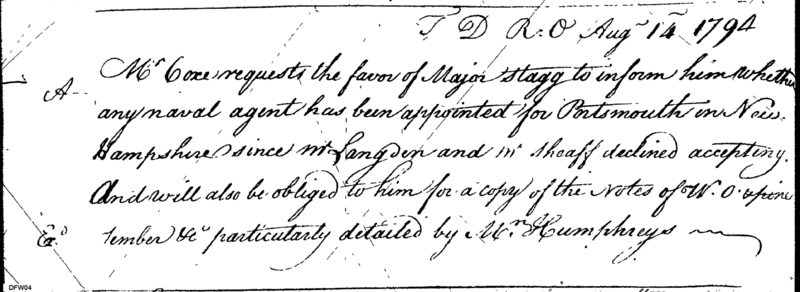 T D R.O Augt 14 1794
A Mr Coxe requests the favor of Major Stagg to inform him whether
any naval agent has been appointed for Portsmouth in New
Hampshire since Mr Langdon and Mr Sheaff declined accepting.
And will also be obliged to him for a copy of the Notes of W. O. & pine
Exd timber &c particularly detailed by Mr Humphreys
DFW04